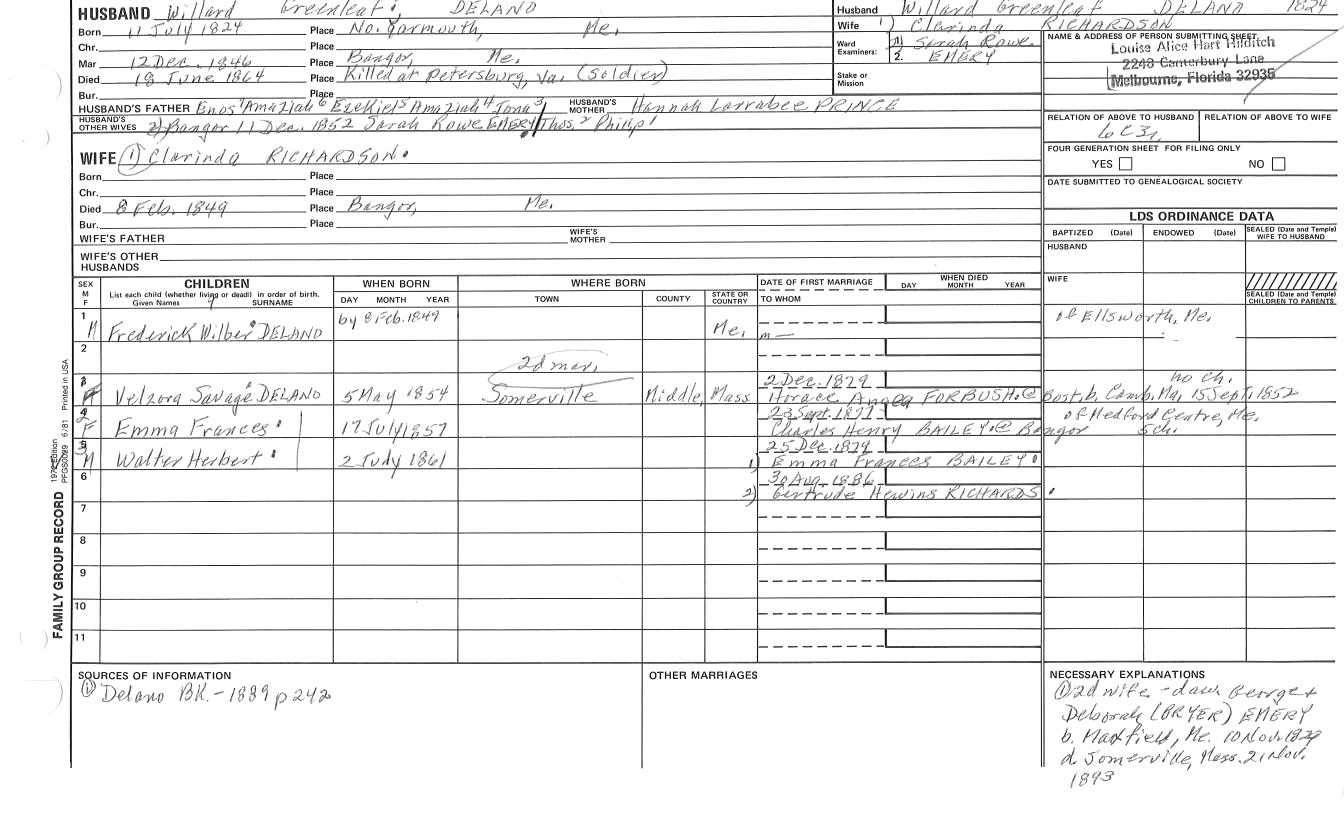 HUSBAND Willard Greenleaf DELANO
Husband Willard Greenleaf DELANO 1824
Born 11 July 1824 Place No. Yarmouth, Me.
Wife 1) Clarinda RICHARDSON
Chr. Place
Ward Examiners: 1. 2) Sarah Rowe
2. EMERY
Mar 12 Dec. 1846 Place Bangor, Me.
Died 18 June 1864 Place Killed at Petersburg, Va. (Soldier)
Stake or Mission
Bur. Place
NAME & ADDRESS OF PERSON SUBMITTING SHEET
Louise Alice Hart Hilditch
2243 Canterbury Lane
Melbourne, Florida 32935
HUSBAND'S FATHER Enos7 Amaziah6 Ezekiel5 Amaziah4 Jona3 HUSBAND'S MOTHER Hannah Larrabee PRINCE
HUSBAND'S OTHER WIVES 2) Bangor 11 Dec. 1852 Sarah Rowe EMERY/Thos.2 Philip1
RELATION OF ABOVE TO HUSBAND RELATION OF ABOVE TO WIFE
6C3r
WIFE (1) Clarinda RICHARDSON
FOUR GENERATION SHEET FOR FILING ONLY
YES NO
Born Place
Chr. Place
DATE SUBMITTED TO GENEALOGICAL SOCIETY
Died 8 Feb. 1849 Place Bangor, Me.
Bur. Place
WIFE'S FATHER WIFE'S MOTHER
WIFE'S OTHER HUSBANDS
LDS ORDINANCE DATA
BAPTIZED (Date) ENDOWED (Date) SEALED (Date and Temple) WIFE TO HUSBAND
HUSBAND
WIFE
SEALED (Date and Temple) CHILDREN TO PARENTS
SEX M F CHILDREN WHEN BORN WHERE BORN DATE OF FIRST MARRIAGE WHEN DIED
List each child (whether living or dead) in order of birth.
Given Names SURNAME DAY MONTH YEAR TOWN COUNTY STATE OR COUNTRY TO WHOM DAY MONTH YEAR
1 M Frederick Wilber DELANO by 8 Feb. 1849 Me. m — of Ellsworth, Me.
2 2d mar.
3 F Velzora Savage DELANO 5 May 1854 Somerville Middle, Mass 2 Dec. 1879 no ch.
Horace Angea FORBUSH @ Bost, b. Camb. Ma, 15 Sept, 1852
4 2 F Emma Frances 17 July 1857 23 Sept. 1877 of Medford Centre, Me.
Charles Henry BAILEY @ Bangor 5 ch.
5 3 M Walter Herbert 2 July 1861 25 Dec. 1879
1) Emma Frances BAILEY
6 30 Aug. 1886
2) Gertrude Hewins RICHARDS
7
8
9
10
11
FAMILY GROUP RECORD
PFGS0029 6/81 Printed in USA
SOURCES OF INFORMATION
① Delano BK. - 1889 p 242
OTHER MARRIAGES
NECESSARY EXPLANATIONS
① 2d wife - dau. George +
Deborah (DRYER) EMERY
b. Maxfield, Me. 10 Nov. 1829
d. Somerville, Mass. 21 Nov.
1893